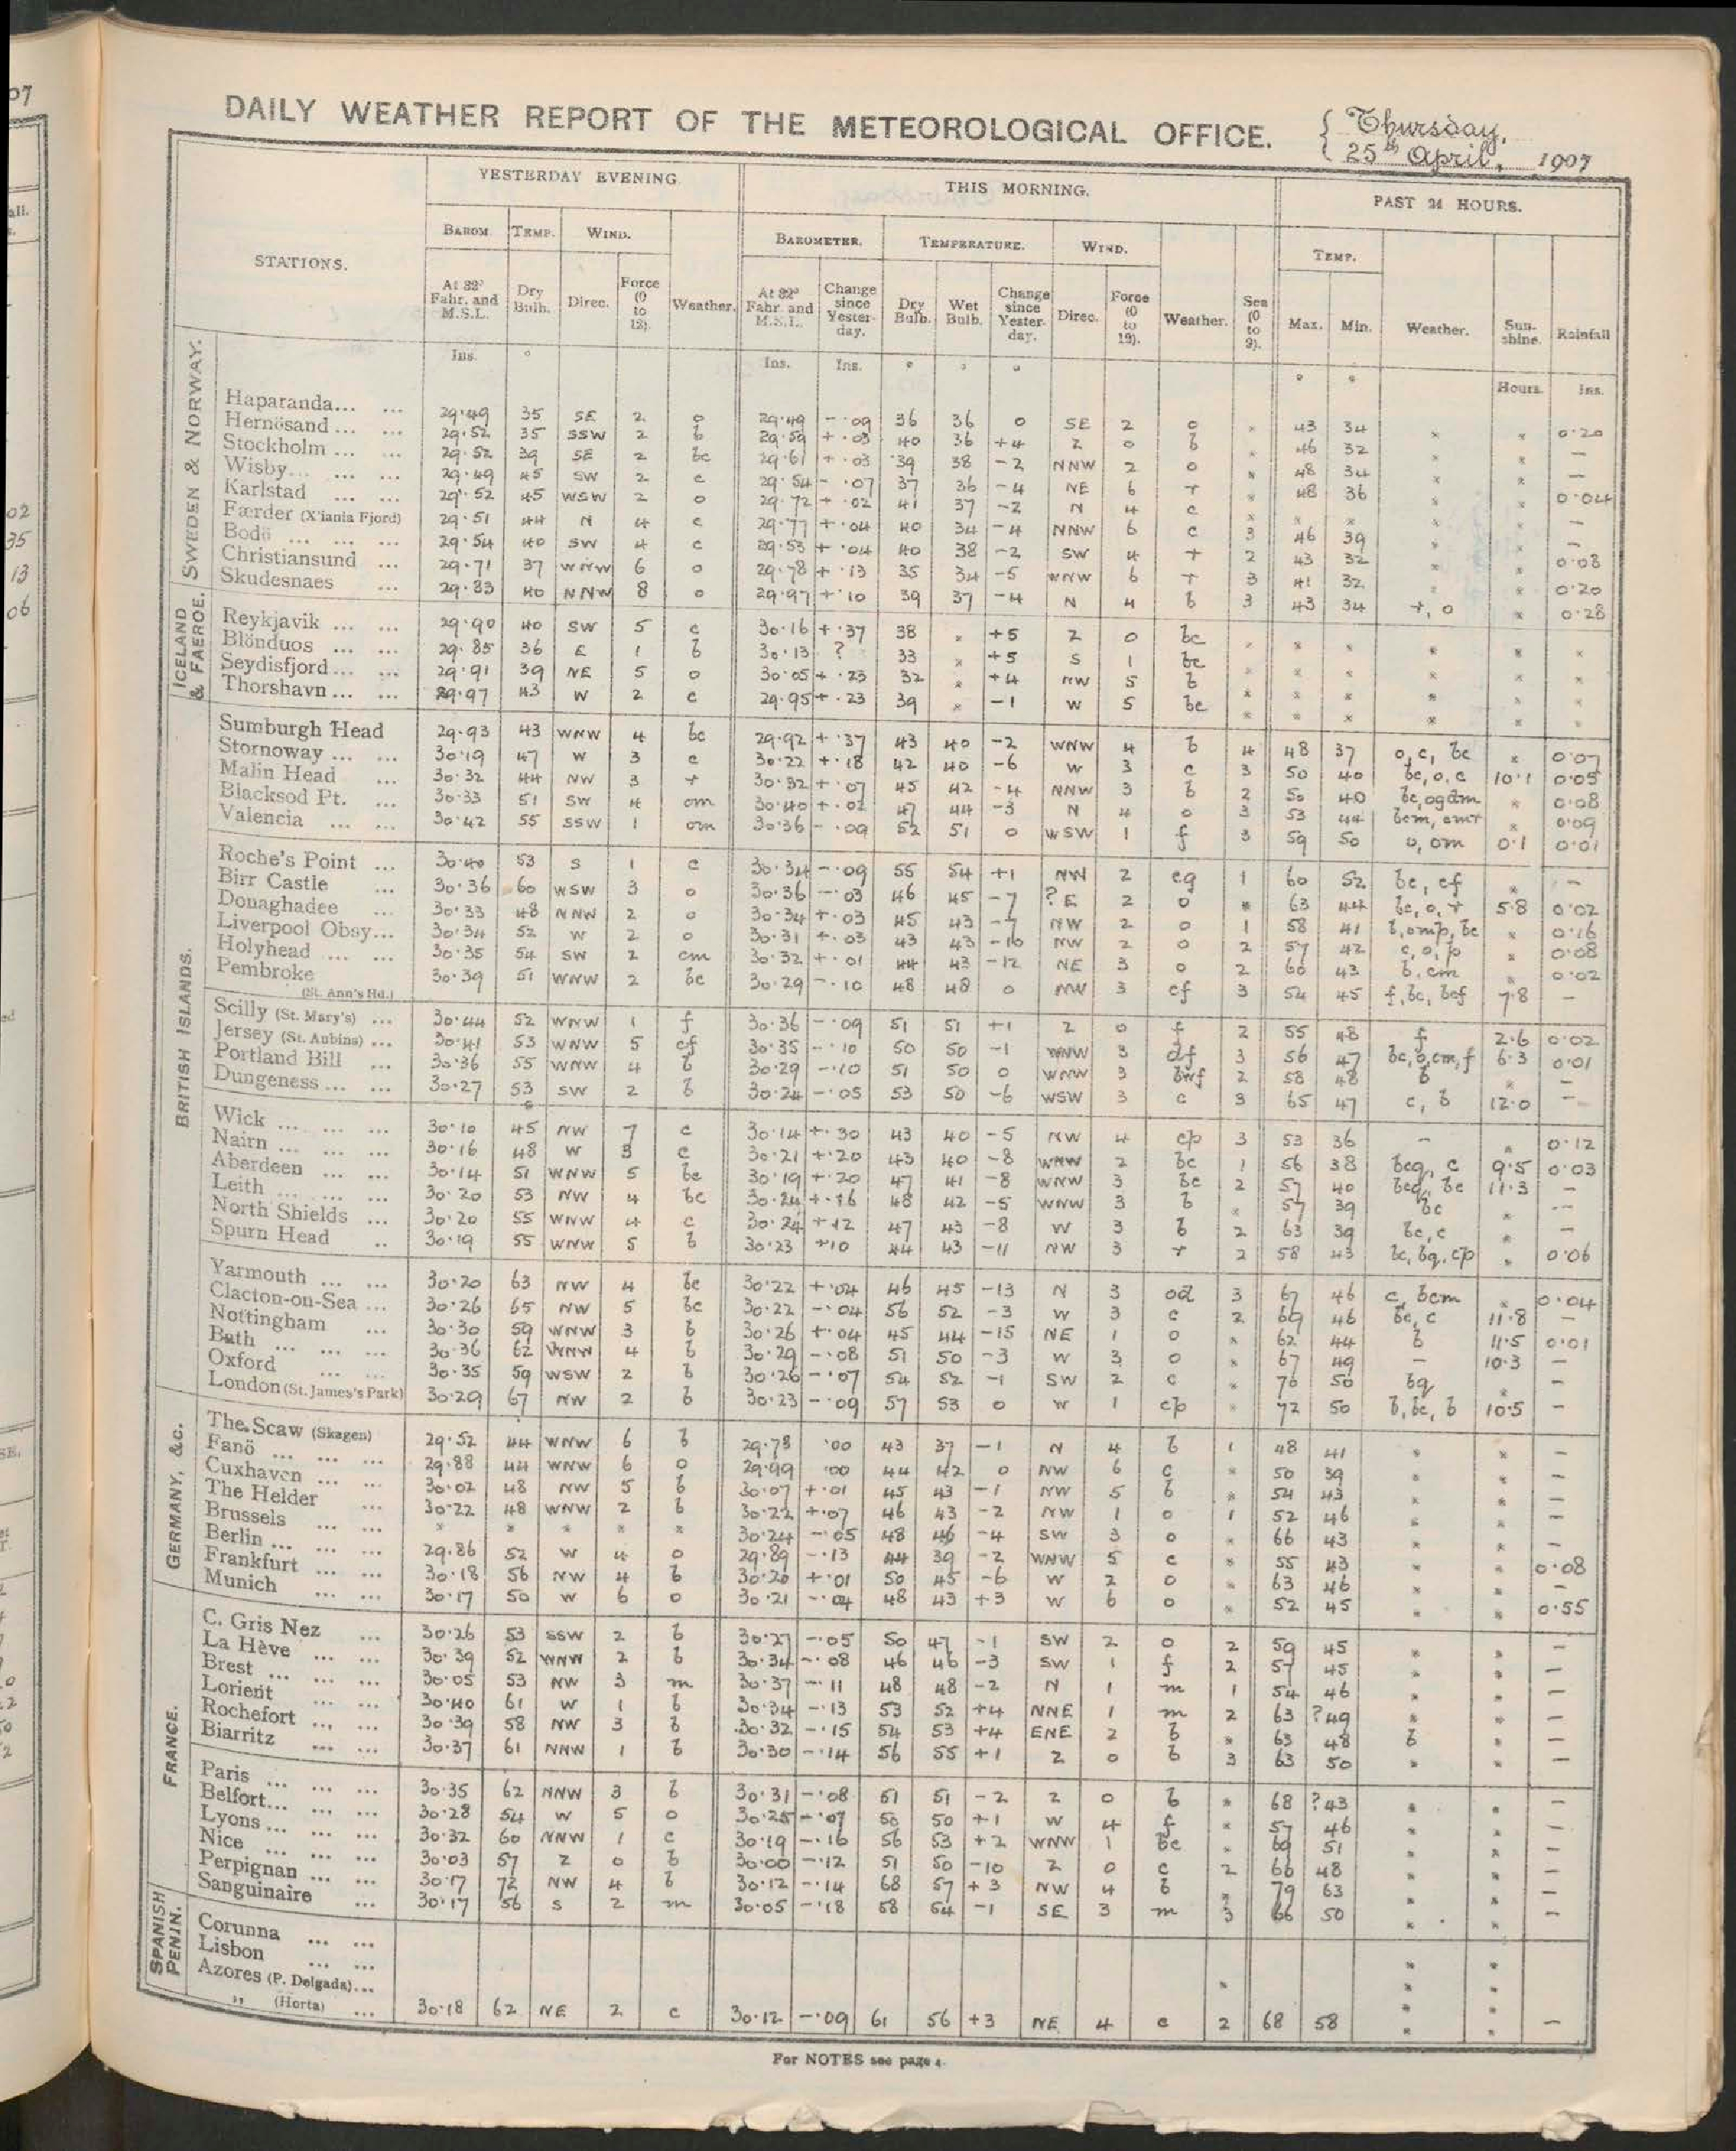 DAILY WEATHER REPORT OF THE METEOROLOGICAL OFFICE. { Thursday, 25th April, 1907
YESTERDAY EVENING THIS MORNING. PAST 24 HOURS.
STATIONS. BAROM. TEMP. WIND. BAROMETER. TEMPERATURE. WIND. TEMP.
At 32° Fahr. and M.S.L. Dry Bulb. Direc. Force (0 to 12). Weather. At 32° Fahr. and M.S.L. Change since Yesterday. Dry Bulb. Wet Bulb. Change since Yesterday. Direc. Force (0 to 12). Weather. Sea (0 to 9). Max. Min. Weather. Sunshine. Rainfall
Ins. ° Ins. Ins. ° ° ° ° ° Hours. Ins.
SWEDEN & NORWAY.
Haparanda... 29.49 35 SE 2 o 29.49 -.09 36 36 0 SE 2 o × 43 34 × × 0.20
Hernösand ... 29.52 35 SSW 2 b 29.59 +.03 40 36 +4 Z 0 b × 46 32 × × —
Stockholm ... 29.52 39 SE 2 bc 29.61 +.03 39 38 -2 NNW 2 o × 48 34 × × —
Wisby... 29.49 45 SW 2 c 29.54 -.07 37 36 -4 NE 6 r × 48 36 × × 0.04
Karlstad ... 29.52 45 WSW 2 o 29.72 +.02 41 37 -2 N 4 c × × × × × —
Færder (X'iania Fjord) 29.51 44 N 4 c 29.77 +.04 40 34 -4 NNW 6 c 3 46 39 × × —
Bodö ... 29.54 40 SW 4 c 29.53 +.04 40 38 -2 SW 4 r 2 43 32 × × 0.08
Christiansund ... 29.71 37 WNW 6 o 29.78 +.13 35 34 -5 WNW 6 r 3 41 32 × × 0.20
Skudesnaes ... 29.83 40 NNW 8 o 29.97 +.10 39 37 -4 N 4 b 3 43 34 r, o × 0.28
ICELAND & FAEROE.
Reykjavik ... 29.90 40 SW 5 c 30.16 +.37 38 × +5 Z 0 bc × × × × × ×
Blönduos ... 29.85 36 E 1 b 30.13 ? 33 × +5 S 1 bc × × × × × ×
Seydisfjord ... 29.91 39 NE 5 o 30.05 +.23 32 × +4 NW 5 b × × × × × ×
Thorshavn ... 29.97 43 W 2 c 29.95 +.23 39 × -1 W 5 bc × × × × × ×
BRITISH ISLANDS.
Sumburgh Head 29.93 43 WNW 4 bc 29.92 +.37 43 40 -2 WNW 4 b 4 48 37 o, c, bc × 0.07
Stornoway ... 30.19 47 W 3 c 30.22 +.18 42 40 -6 W 3 c 3 50 40 bc, o, c 10.1 0.05
Malin Head ... 30.32 44 NW 3 r 30.32 +.07 45 42 -4 NNW 3 b 2 50 40 bc, ogdm × 0.08
Blacksod Pt. ... 30.33 51 SW 4 om 30.40 +.02 47 44 -3 N 4 o 3 53 44 bcm, omr × 0.09
Valencia ... 30.42 55 SSW 1 om 30.36 -.09 52 51 0 WSW 1 f 3 59 50 o, om 0.1 0.01
Roche's Point ... 30.40 53 S 1 c 30.34 -.09 55 54 +1 NW 2 cg 1 60 52 bc, cf × —
Birr Castle ... 30.36 60 WSW 3 o 30.36 -.03 46 45 -7 ?E 2 o × 63 44 bc, o, r 5.8 0.02
Donaghadee ... 30.33 48 NNW 2 o 30.34 +.03 45 43 -7 NW 2 o 1 58 41 b, omp, bc × 0.16
Liverpool Obsy... 30.34 52 W 2 o 30.31 +.03 43 43 -10 NW 2 o 2 57 42 c, o, p × 0.08
Holyhead ... 30.35 54 SW 2 cm 30.32 +.01 44 43 -12 NE 3 o 2 60 43 b, cm × 0.02
Pembroke (St. Ann's Hd.) 30.39 51 WNW 2 bc 30.29 -.10 48 48 0 NW 3 cf 3 54 45 f, bc, bcf 7.8 —
Scilly (St. Mary's) ... 30.44 52 WNW 1 f 30.36 -.09 51 51 +1 Z 0 f 2 55 48 f 2.6 0.02
Jersey (St. Aubins) ... 30.41 53 WNW 5 cf 30.35 -.10 50 50 -1 WNW 3 df 3 56 47 bc, o, cm, f 6.3 0.01
Portland Bill ... 30.36 55 WNW 4 b 30.29 -.10 51 50 0 WNW 3 bwf 2 58 48 b × —
Dungeness ... 30.27 53 SW 2 b 30.24 -.05 53 50 -6 WSW 3 c 3 65 47 c, b 12.0 —
Wick ... 30.10 45 NW 7 c 30.14 +.30 43 40 -5 NW 4 cp 3 53 36 — × 0.12
Nairn ... 30.16 48 W 3 c 30.21 +.20 43 40 -8 WNW 2 bc 1 56 38 bcq, c 9.5 0.03
Aberdeen ... 30.14 51 WNW 5 bc 30.19 +.20 47 41 -8 WNW 3 bc 2 57 40 bcq, bc 11.3 —
Leith ... 30.20 53 NW 4 bc 30.24 +.16 48 42 -5 WNW 3 b × 57 39 bc × —
North Shields ... 30.20 55 WNW 4 c 30.24 +.12 47 43 -8 W 3 b 2 63 39 bc, c × —
Spurn Head .. 30.19 55 WNW 5 b 30.23 +.10 44 43 -11 NW 3 r 2 58 43 bc, bq, cp × 0.06
Yarmouth ... 30.20 63 NW 4 bc 30.22 +.04 46 45 -13 N 3 od 3 67 46 c, bcm × 0.04
Clacton-on-Sea ... 30.26 65 NW 5 bc 30.22 -.04 56 52 -3 W 3 c 2 69 46 bc, c 11.8 —
Nottingham ... 30.30 59 WNW 3 b 30.26 +.04 45 44 -15 NE 1 o × 62 44 b 11.5 0.01
Bath ... 30.36 62 WNW 4 b 30.29 -.08 51 50 -3 W 3 o × 67 49 — 10.3 —
Oxford ... 30.35 59 WSW 2 b 30.26 -.07 54 52 -1 SW 2 c × 70 50 bq × —
London (St. James's Park) 30.29 67 NW 2 b 30.23 -.09 57 53 0 W 1 cp × 72 50 b, bc, b 10.5 —
GERMANY, &c.
The Scaw (Skagen) 29.52 44 WNW 6 b 29.78 .00 43 37 -1 N 4 b 1 48 41 × × —
Fanö ... 29.88 44 WNW 6 o 29.99 .00 44 42 0 NW 6 c × 50 39 × × —
Cuxhaven ... 30.02 48 NW 5 b 30.07 +.01 45 43 -1 NW 5 b × 54 43 × × —
The Helder ... 30.22 48 WNW 2 b 30.22 +.07 46 43 -2 NW 1 o 1 52 46 × × —
Brussels ... × × × × × 30.24 -.05 48 46 -4 SW 3 o × 66 43 × × —
Berlin ... 29.86 52 W 4 o 29.89 -.13 44 39 -2 WNW 5 c × 55 43 × × 0.08
Frankfurt ... 30.18 56 NW 4 b 30.20 +.01 50 45 -6 W 2 o × 63 46 × × —
Munich ... 30.17 50 W 6 o 30.21 -.04 48 43 +3 W 6 o × 52 45 × × 0.55
FRANCE.
C. Gris Nez ... 30.26 53 SSW 2 b 30.27 -.05 50 47 -1 SW 2 o 2 59 45 × × —
La Hève ... 30.39 52 WNW 2 b 30.34 -.08 46 46 -3 SW 1 f 2 57 45 × × —
Brest ... 30.05 53 NW 3 m 30.37 -.11 48 48 -2 N 1 m 1 54 46 × × —
Lorient ... 30.40 61 W 1 b 30.34 -.13 53 52 +4 NNE 1 m 2 63 ?49 × × —
Rochefort ... 30.39 58 NW 3 b 30.32 -.15 54 53 +4 ENE 2 b × 63 48 b × —
Biarritz ... 30.37 61 NNW 1 b 30.30 -.14 56 55 +1 Z 0 b 3 63 50 × × —
Paris ... 30.35 62 NNW 3 b 30.31 -.08 51 51 -2 Z 0 b × 68 ?43 × × —
Belfort... 30.28 54 W 5 o 30.25 -.07 50 50 +1 W 4 f × 57 46 × × —
Lyons ... 30.32 60 NNW 1 c 30.19 -.16 56 53 +2 WNW 1 bc × 69 51 × × —
Nice ... 30.03 57 Z 0 b 30.00 -.12 51 50 -10 Z 0 c 2 66 48 × × —
Perpignan ... 30.17 72 NW 4 b 30.12 -.14 68 57 +3 NW 4 b × 79 63 × × —
Sanguinaire ... 30.17 56 S 2 m 30.05 -.18 58 54 -1 SE 3 m 3 66 50 × × —
SPANISH PENIN.
Corunna ...
Lisbon ... × ×
Azores (P. Delgada)... × × ×
" (Horta) ... 30.18 62 NE 2 c 30.12 -.09 61 56 +3 NE 4 c 2 68 58 × × —
For NOTES see page 4.